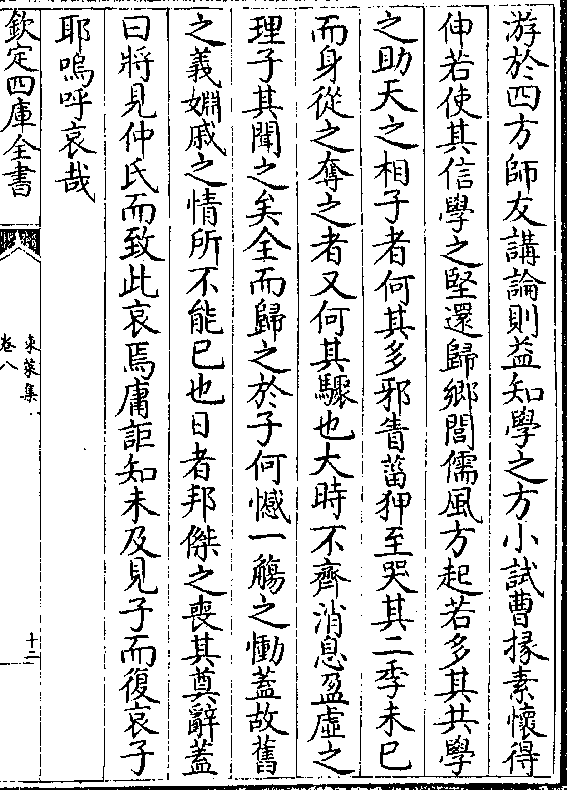 游於四方師友講論則益知學之方小試曹掾素懷得
伸若使其信學之堅還歸鄉閭儒風方起若多其共學
之助天之相子者何其多邪眚菑狎至哭其二季未已
而身從之奪之者又何其驟也大時不齊消息盈虛之
理子其聞之矣全而歸之於子何憾一觴之慟蓋故舊
之義姻戚之情所不能已也日者邦傑之喪其奠辭蓋
曰將見仲氏而致此哀焉庸詎知未及見子而復哀子
耶嗚呼哀哉
欽定四庫全書
東萊集
卷八
十三